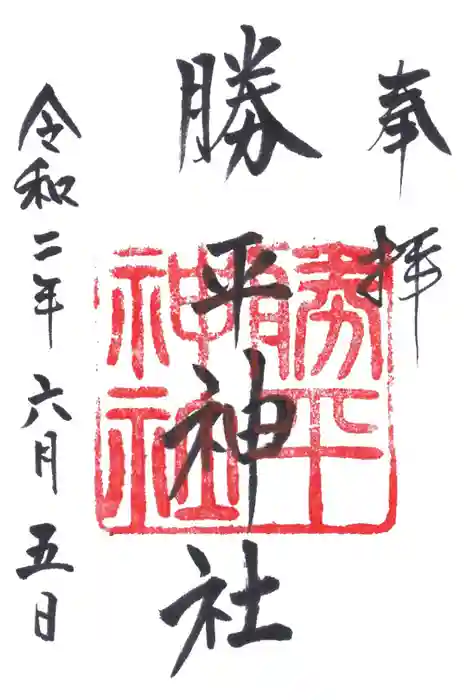 奉拝
勝平神社
勝平
神社
令和二年六月五日